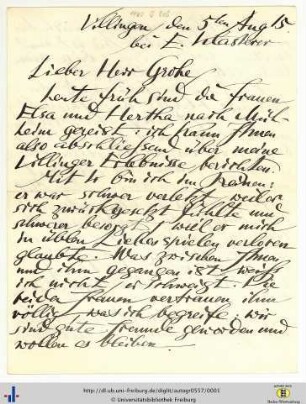 Villingen, den 5ten Aug 15.
bei E.
Lieber Herr Grohe
heute früh sind die Frauen
Elsa und Hertha nach Mül-
heim gereist; ich kann Ihnen
also abschliessend über meine
Villinger Erlebnisse berichten.
Mit bin ich im Frieden:
er war schwer verletzt, weil er
sich zurückgesetzt fühlte und
schwerer besorgt weil er mich
in üblen Liebesspielen verloren
glaubte. Was zwischen Ihnen
und ihm gegangen ist weiss
ich nicht, er schweigt. Die
beiden Frauen vertrauen ihm
völlig, was ich begreife; wir
sind gute Freunde geworden und
wollen es bleiben.
http://dl.ub.uni-freiburg.de/diglit/autogr0557/0001
© Universitätsbibliothek Freiburg